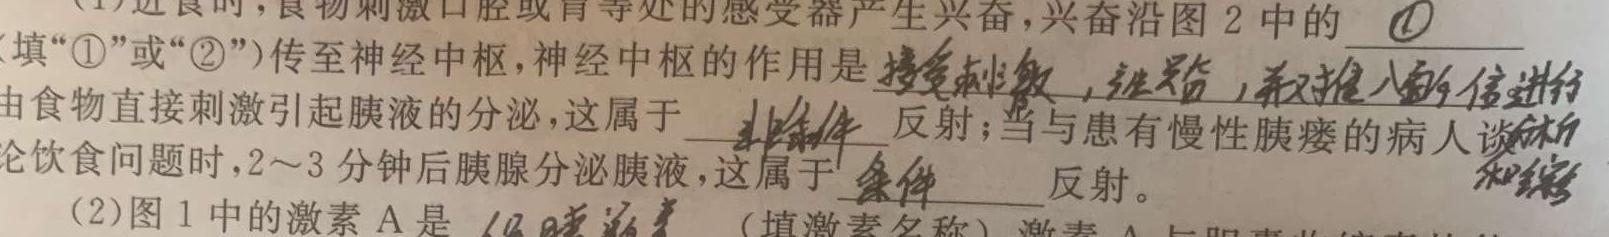 (1)进食时,食物刺激口腔或胃等处的感受器产生兴奋,兴奋沿图 2 中的 ①
(填“①”或“②”)传至神经中枢,神经中枢的作用是 接受刺激,产生兴奋,并对传入的信息进行
由食物直接刺激引起胰液的分泌,这属于 非条件 反射;当与患有慢性胰瘘的病人谈 分析
论饮食问题时,2~3 分钟后胰腺分泌胰液,这属于 条件 反射。 和综合
(2)图 1 中的激素 A 是 促胰液素 (填激素名称)